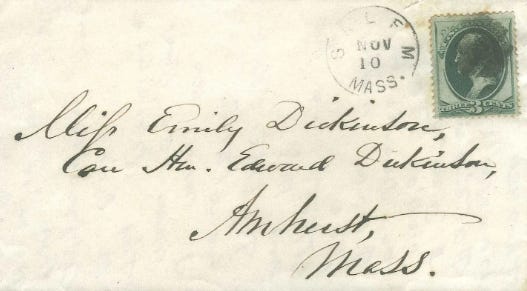 SALEM
NOV
10
MASS.
THREE 3 CENTS
Miss Emily Dickinson,
Care Hon. Edward Dickinson,
Amherst,
Mass.